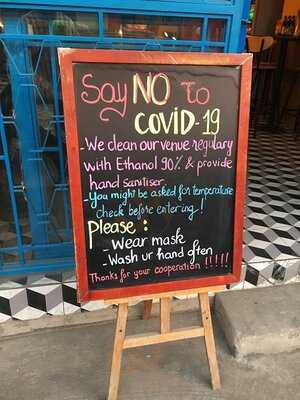 Say NO to
COVID-19
-We clean our venue regulary
with Ethanol 90% & provide
hand Sanitiser.
-You might be asked for temperature
check before entering!
Please :
- Wear mask
- Wash ur hand often
Thanks for your cooperation !!!!!